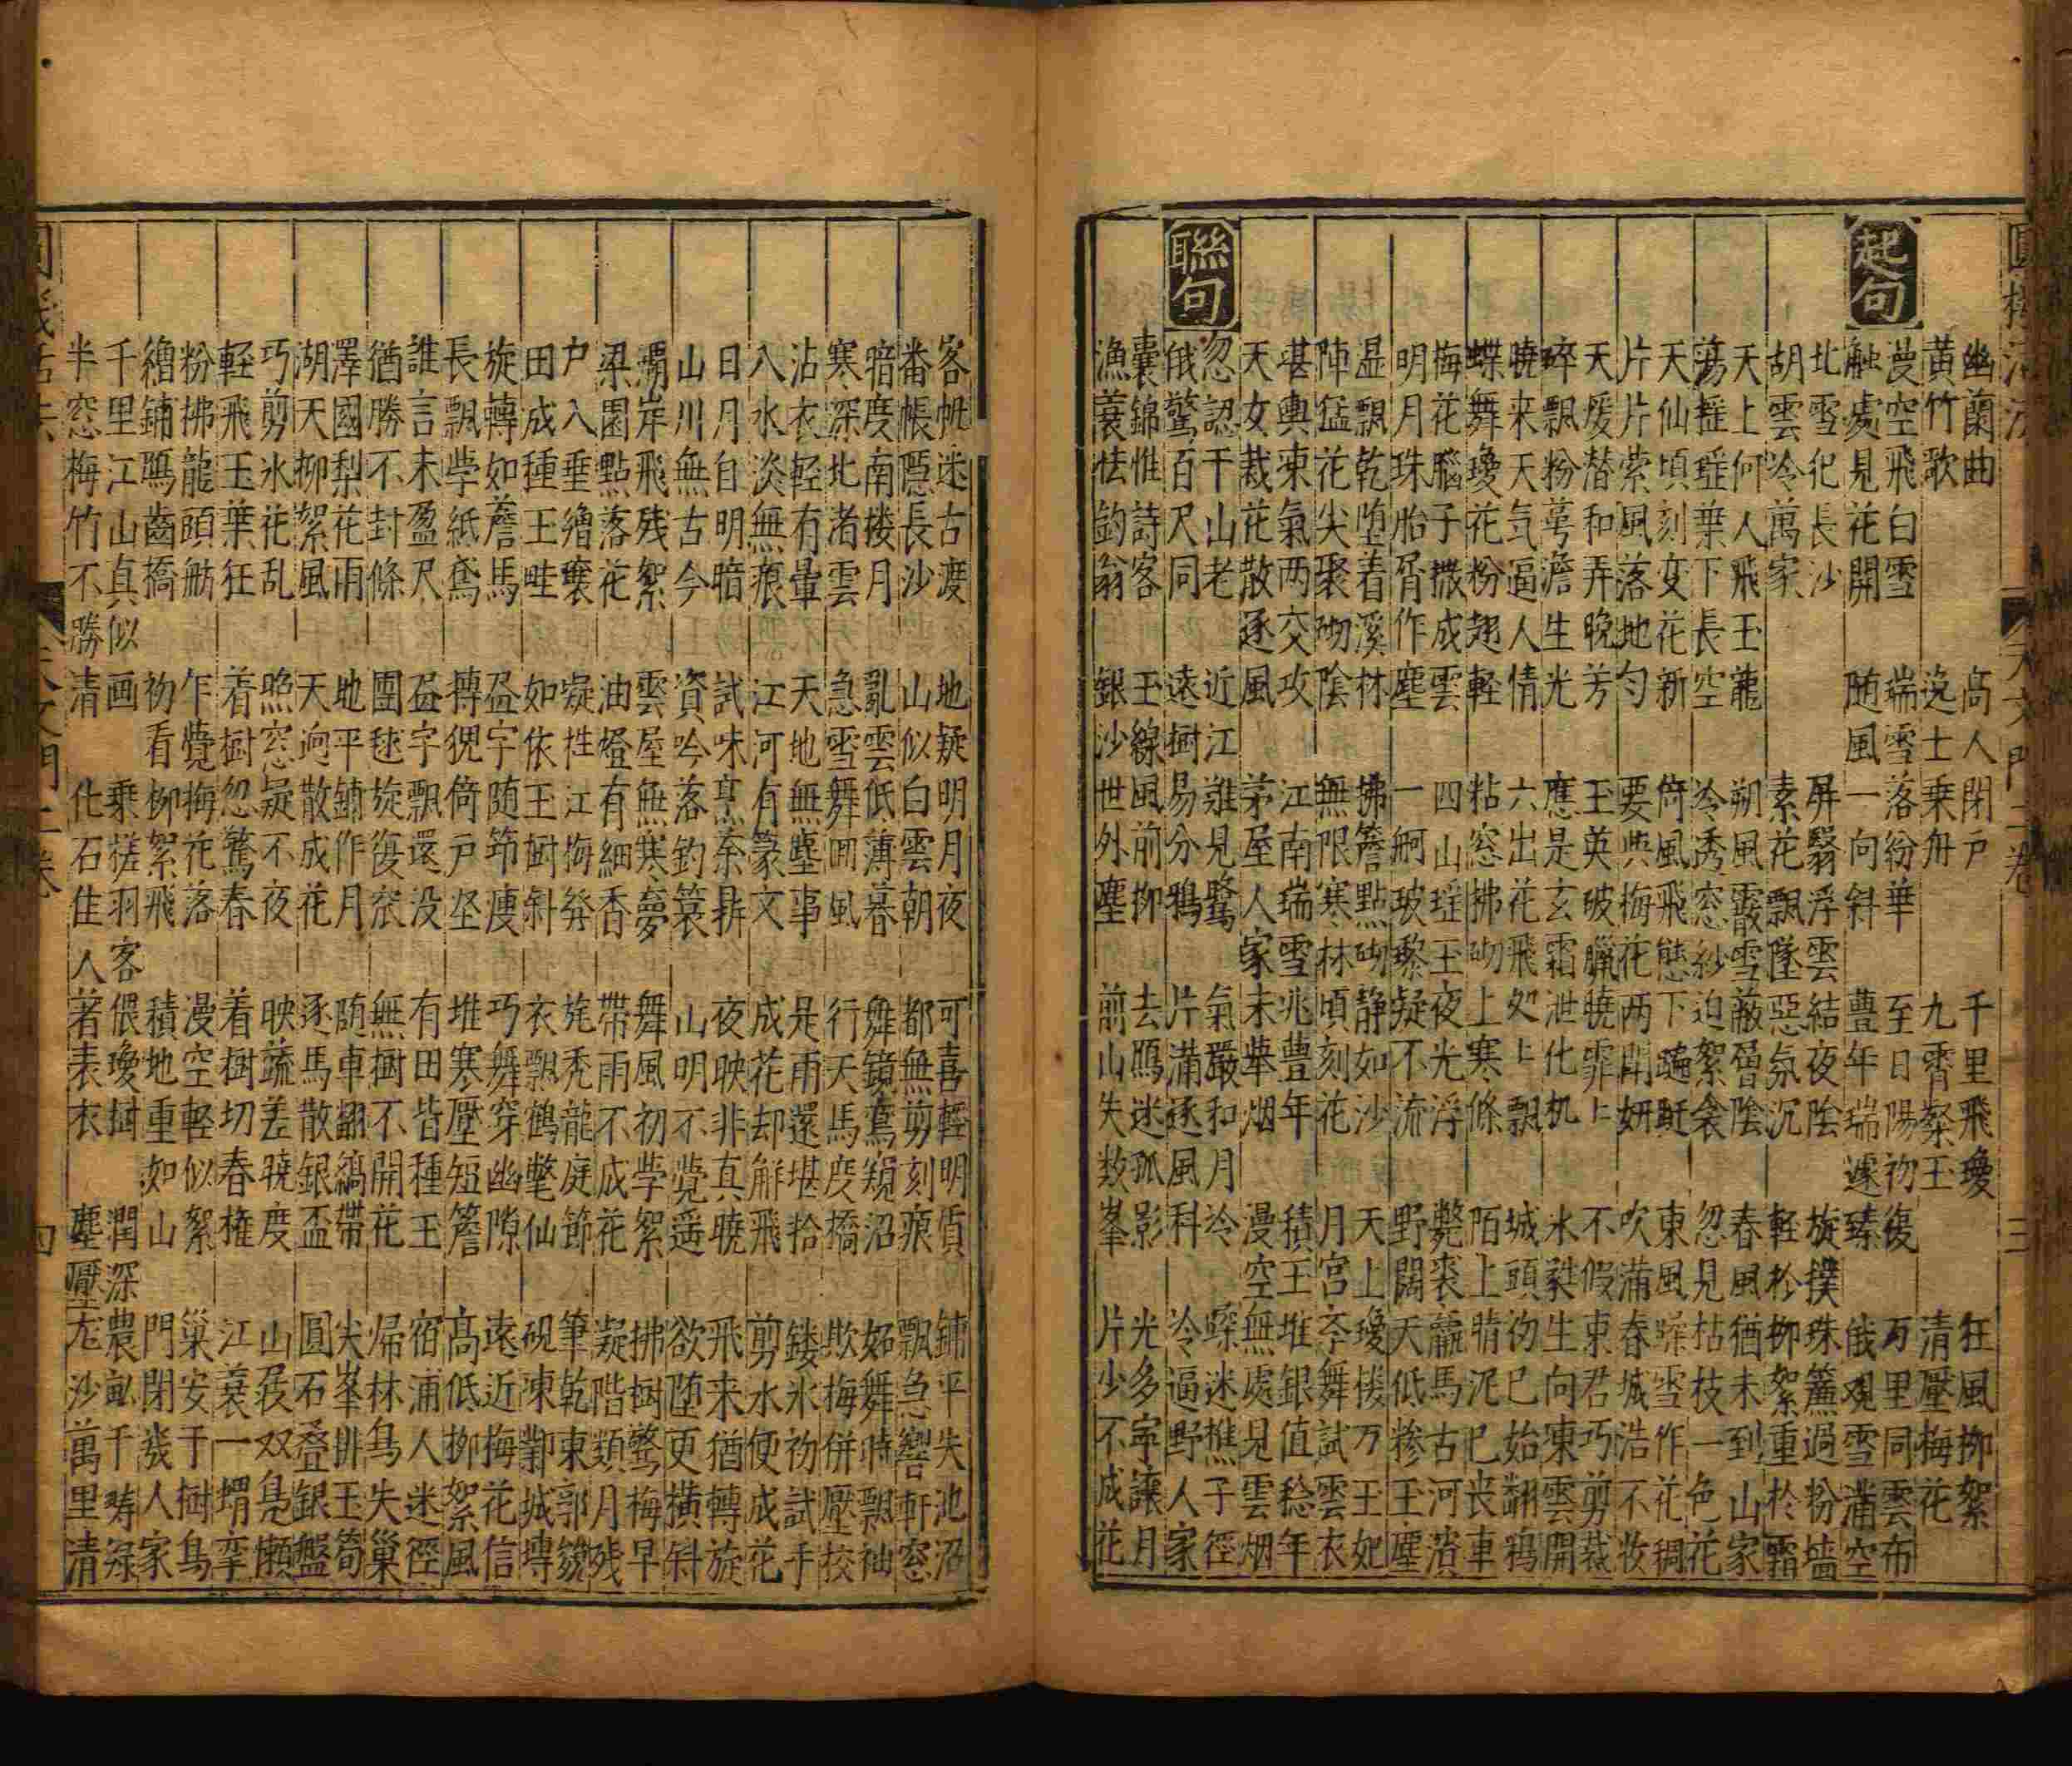 幽蘭曲 高人閉戶 千里飛瓊 狂風柳絮
黃竹歌 逸士乘舟 九霄粲玉 清壓梅花
起句
漫空飛白雪 端雪落紛華 至日陽初復 万里同雲布
触處見花開 随風一向斜 豊年瑞遽臻 俄观雪滿空
北雪犯長沙 屏翳浮雲結夜陰 旋撲珠簾過粉墻
胡雲冷萬家 素花飄墜惡氛沉 輕於柳絮重於霜
天上何人飛玉龍 朔風霰雪蔽曾陰 春風猶未到山家
蕩摇瑶葉下長空 冷透窓紗迫絮衾 忽見枯枝一色花
天仙頃刻变花新 倚風飛態下 東風雪作花稠
片片萦風落地勻 要與梅花两鬪妍 吹滿春城浩不收
天爱替和弄晚芳 玉英破臘曉霏霏 不假東君巧剪裁
碎飄粉萼澹生光 應是玄霜泄化机 水生向東雲開
曉来天気逼人情 六出花飛処処飄 城頭初已始翻鴉
蝶舞瓊花粉翅輕 粘窓拂砌上寒條 陌上晴泥已丧車
梅花腦子撒成雲 四山瑶玉夜光浮 氅裘驢馬古河濱
明月珠胎屑作塵 一舸玻瓈凝不流 野闊天低糝玉塵
湿飄乾堕着溪林 拂簷點砌静如沙 天上瓊楼万玉妃
陣猛花尖聚砌陰 無限寒林頃刻花 月宫舞試雲衣
堪輿東氣两交攻 江南瑞雪兆豊年 積玉堆銀值稔年
天女裁花散逐風 茅屋人家未舉烟 漫空無處見雲烟
聯句
忽認千山老 近江難見鷺 氣嚴和月冷 迷樵子徑
俄驚百尺同 遠樹易分鴉 片滿逐風科 冷逼野人家
囊錦惟詩客 玉線風前柳 去鴈迷孤影 光多寧讓月
漁蓑怯釣翁 銀沙世外塵 前山失数峯 片少不成花
客帆迷古渡 地疑明月夜 可喜輕明質 鋪平失池沼
番帳隱長沙 山似白雲朝 都無剪刻痕 飄急響軒窓
暗度南楼月 亂雲低薄暮 舞鏡鸞窺沼 妬舞時飄袖
寒深北渚雲 急雪舞回風 行天馬度橋 欺梅併壓枝
沾衣輕有暈 天地無塵事 是雨還堪拾 鏤氷初試手
入水淡無痕 江河有篆文 成花却解飛 剪水便成花
日月自明暗 試味烹茶耕 夜映非真曉 飛来猶轉旋
山川無古今 資吟落釣蓑 山明不覺遥 欲堕更横斜
岸飛残絮 雲屋無寒夢 舞風初學絮 拂樹驚梅早
梁園點落花 油燈有細香 帶雨不成花 凝階類月残
户入垂繒 凝性江梅發 旄秃龍庭節 筆乾東郭
田成種玉畦 如依玉樹斜 衣飄鶴氅仙 硯凍鄴城磚
旋轉如簷馬 盈宇随筇瘦 巧舞穿幽隙 遠近梅花信
長飄學紙鳶 摶猊倚戶坐 堆寒壓短簷 高低柳絮風
誰言未盈尺 盈字飄還没 有田皆種玉 宿浦人迷徑
猶勝不封條 團毬旋復 無樹不開花 帰林鳥失巢
澤國梨花雨 地平鋪作月 随車翻縞帶 尖峯排玉筍
湖天柳絮風 天逈散成花 逐馬散銀盃 圓石叠銀盤
巧剪氷花乱 照窓疑不夜 映疏差曉度 山双鳧懶
輕飛玉葉狂 着樹忽驚春 着樹切春 江蓑一
粉拂龍頭舫 乍覺梅花落 漫空輕似絮 巢安于樹鳥
繒鋪鴈齒橋 初看柳絮飛 積地重如山 門閉幾人家
千里江山真似画 乗槎羽客偎瓊樹 潤深農畆千
半窓梅竹不勝清 化石佳人著表衣 塵壓尨沙萬里清